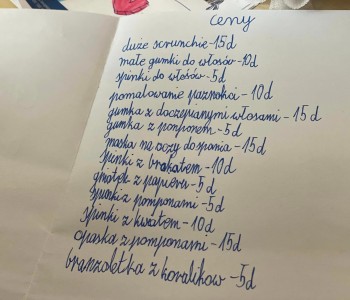 ceny
duże scrunchie - 15d
małe gumki do włosów - 10d
spinki do włosów - 5d
pomalowanie paznokci - 10d
gumka z doczepianymi włosami - 15d
gumka z ponponem - 5d
maska na oczy do spania - 15d
spinki z brokatem - 10d
gniotek z papieru - 5d
spinki z pomponami - 5d
spinki z kwiatem - 10d
opaska z pomponami - 15d
branzoletka z koralików - 5d